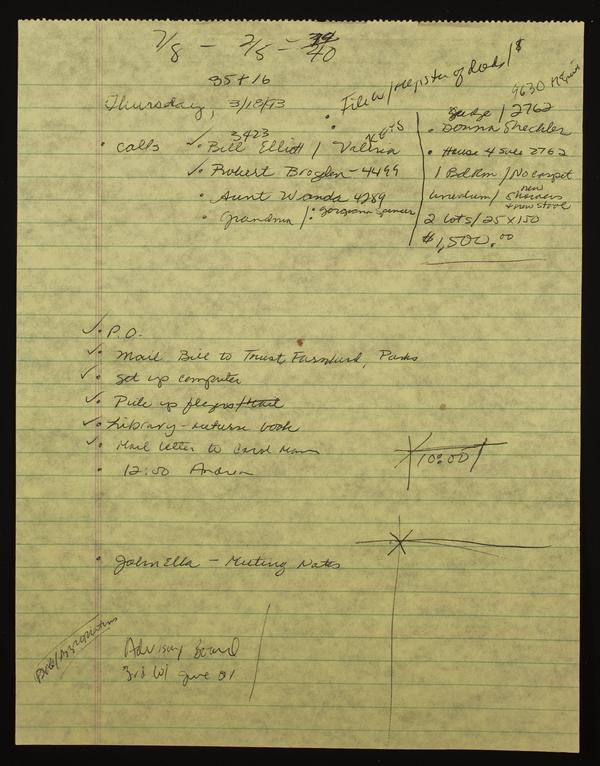 7/8 - 2/5 - 39
40
35 + 16
Thursday, 3/18/93
• File w/ Register of Deeds / $
9630
• calls
3423
✓• Bill Elliott / Valissa
✓• Robert Brogden - 4499
• Aunt Wanda 4289
• Grandma / • Georgiana Spencer
Judge / 2762
• Donna Sheckler
• House 4 sale 2762
1 BdRm / No carpet
new
2 lots / 25 x 150
$1,500.00
✓• P.O.
✓• Mail Bill to Trust Farmland, Parks
✓• Set up computer
✓• Pick up flyers / Mail
✓• Library - return book
✓• Mail letter to Carol Mann
• 12:00 Andrea
10:00
• John Ella - Meeting Notes
Advisory Board
3rd W/ June 91